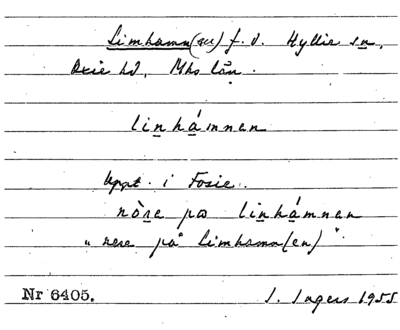 Limhamn(en) f.d. Hyllie sn,
Oxie hd, Mhs län.
linhámnen
Uppt. i Fosie.
nòre pa linhámnen
"nere på Limhamn(en)".
Nr 6405. I. Ingers 1955